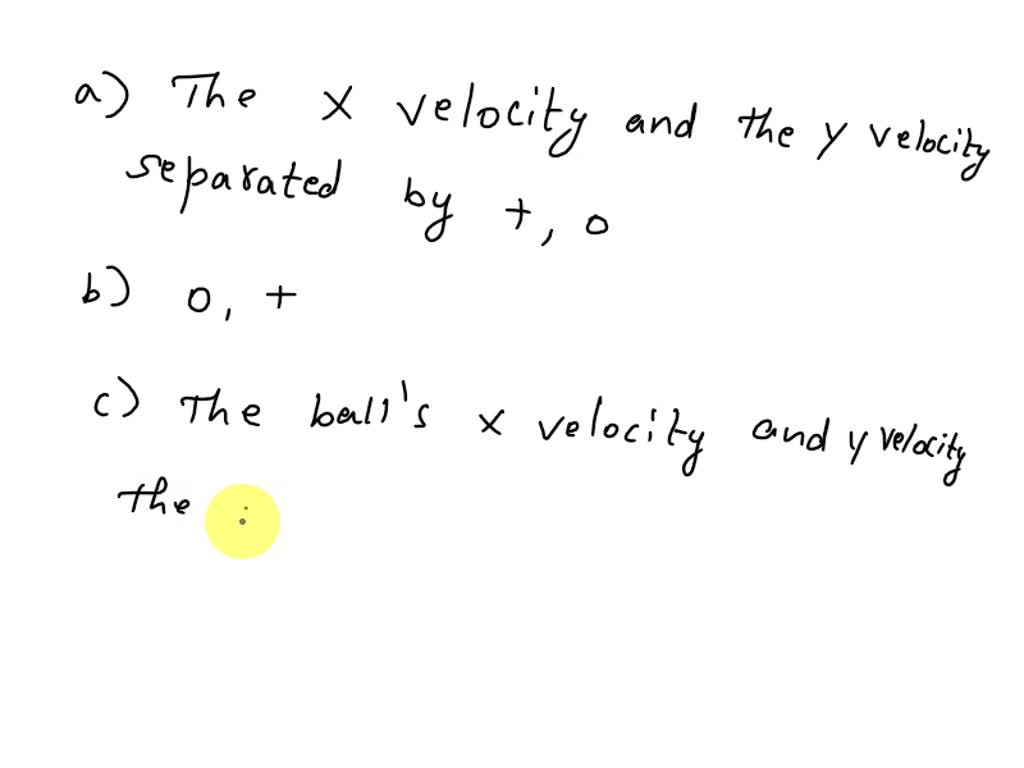 a) The x velocity and the y velocity
separated by +, 0
b) 0, +
c) The ball's x velocity and y velocity
the